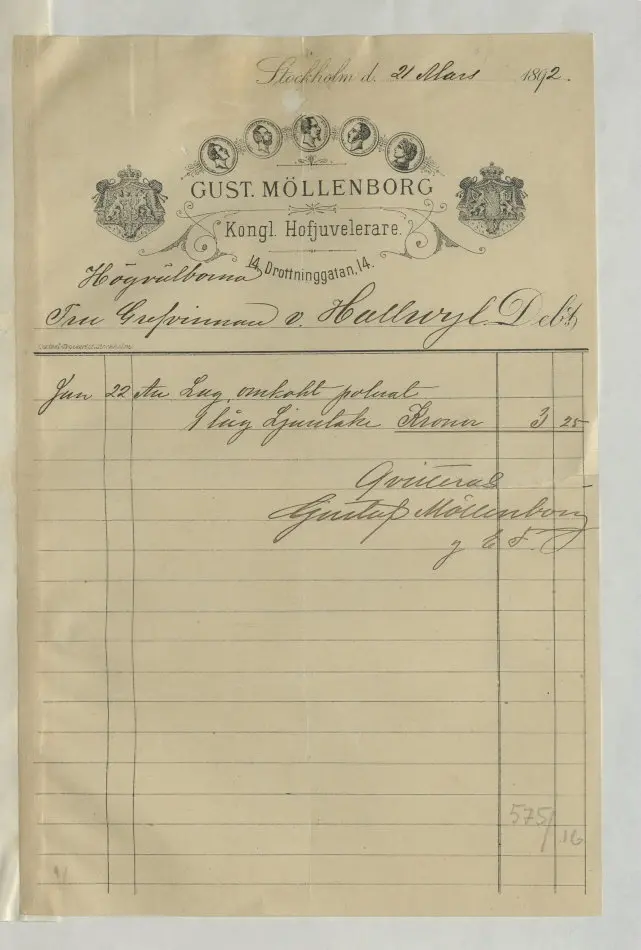 Stockholm d. 21 Mars 1892.
GUST. MÖLLENBORG
Kongl. Hofjuvelerare.
14, Drottninggatan, 14.
Högvälborna
Fru Grefvinnan v. Hallwyl. Debt
Jan 22 An Lag, omkokt polerat
1 låg Ljustake Kronor 3 25
Qvitteras
Gustaf Möllenborg
g E F.
575/
16